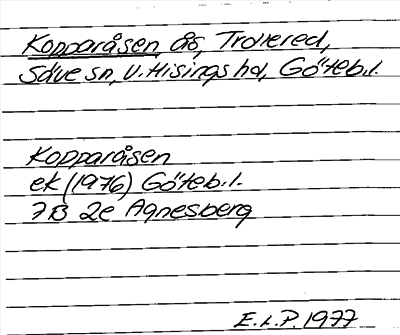 Kopparåsen, ås, Trollered,
Säve sn, V. Hisings hd, Göteb.l.
Kopparåsen
ek (1976) Göteb.l.
7B 2e Agnesberg
E.L.P. 1977